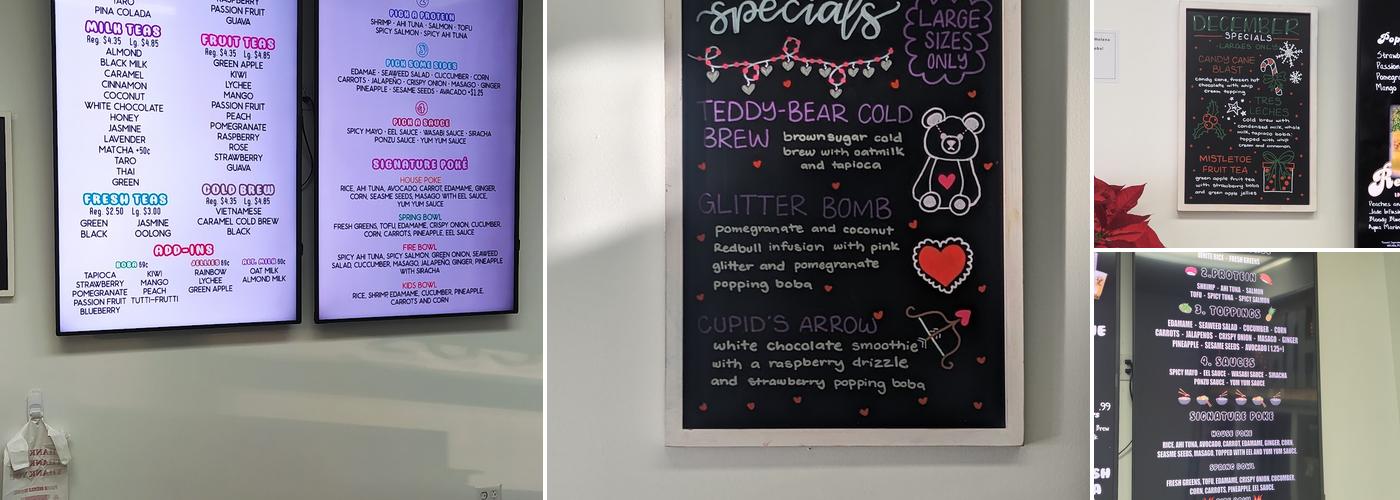 TARO
PINA COLADA
MILK TEAS
Reg. $4.35 Lg. $4.85
ALMOND
BLACK MILK
CARAMEL
CINNAMON
COCONUT
WHITE CHOCOLATE
HONEY
JASMINE
LAVENDER
MATCHA +50c
TARO
THAI
GREEN
FRESH TEAS
Reg. $2.50 Lg. $3.00
GREEN JASMINE
BLACK OOLONG
RASPBERRY
PASSION FRUIT
GUAVA
FRUIT TEAS
Reg. $4.35 Lg. $4.85
GREEN APPLE
KIWI
LYCHEE
MANGO
PASSION FRUIT
PEACH
POMEGRANATE
RASPBERRY
ROSE
STRAWBERRY
GUAVA
COLD BREW
Reg. $4.35 Lg. $4.85
VIETNAMESE
CARAMEL COLD BREW
BLACK
ADD-INS
BOBA 69c
TAPIOCA
STRAWBERRY
POMEGRANATE
PASSION FRUIT
BLUEBERRY
KIWI
MANGO
PEACH
TUTTI-FRUTTI
JELLIES 69c
RAINBOW
LYCHEE
GREEN APPLE
ALT. MILK 69c
OAT MILK
ALMOND MILK
2
PICK A PROTEIN
SHRIMP · AHI TUNA · SALMON · TOFU
SPICY SALMON · SPICY AHI TUNA
3
PICK SOME SIDES
EDAMAE · SEAWEED SALAD · CUCCUMBER · CORN
CARROTS · JALAPEÑO · CRISPY ONION · MASAGO · GINGER
PINEAPPLE · SESAME SEEDS · AVACADO +$1.25
4
PICK A SAUCE
SPICY MAYO · EEL SAUCE · WASABI SAUCE · SIRACHA
PONZU SAUCE · YUM YUM SAUCE
SIGNATURE POKÉ
HOUSE POKE
RICE, AHI TUNA, AVOCADO, CARROT, EDAMAME, GINGER,
CORN, SEASME SEEDS, MASAGO WITH EEL SAUCE,
YUM YUM SAUCE
SPRING BOWL
FRESH GREENS, TOFU, EDAMAME, CRISPY ONION, CUCUMBER,
CORN, CARROTS, PINEAPPLE, EEL SAUCE
FIRE BOWL
SPICY AHI TUNA, SPICY SALMON, GREEN ONION, SEAWEED
SALAD, CUCCUMBER, MASAGO, JALAPENO, GINGER, PINEAPPLE
WITH SIRACHA
KIDS BOWL
RICE, SHRIMP, EDAMAME, CUCUMBER, PINEAPPLE,
CARROTS AND CORN
THANK YOU
specials
LARGE
SIZES
ONLY
TEDDY-BEAR COLD
BREW brown sugar cold
brew with oatmilk
and tapioca
GLITTER BOMB
pomegranate and coconut
Redbull infusion with pink
glitter and pomegranate
popping boba
CUPID'S ARROW
white chocolate smoothie
with a raspberry drizzle
and strawberry popping boba
DECEMBER
SPECIALS
-LARGES ONLY-
CANDY CANE
BLAST
candy cane, frozen hot
chocolate with whip
cream topping
TRES
LECHES
Cold brew with
condensed milk, whole
milk, tapioca boba
topped with whip
cream and cinnamon
MISTLETOE
FRUIT TEA
green apple fruit tea
with strawberry boba
and green apple jellies
WHITE RICE - FRESH GREENS
2.PROTEIN
SHRIMP - AHI TUNA - SALMON
TOFU - SPICY TUNA - SPICY SALMON
3. TOPPINGS
EDAMAME - SEAWEED SALAD - CUCUMBER - CORN
CARROTS - JALAPENOS - CRISPY ONION - MASAGO - GINGER
PINEAPPLE - SESAME SEEDS - AVOCADO (1.25+)
4. SAUCES
SPICY MAYO - EEL SAUCE - WASABI SAUCE - SIRACHA
PONZU SAUCE - YUM YUM SAUCE
SIGNATURE POKE
HOUSE POKE
RICE, AHI TUNA, AVOCADO, CARROT, EDAMAME, GINGER, CORN,
SEASME SEEDS, MASAGO, TOPPED WITH EEL AND YUM YUM SAUCE.
SPRING BOWL
FRESH GREENS, TOFU, EDAMAME, CRISPY ONION, CUCUMBER,
CORN, CARROTS, PINEAPPLE, EEL SAUCE.
.99
Brew